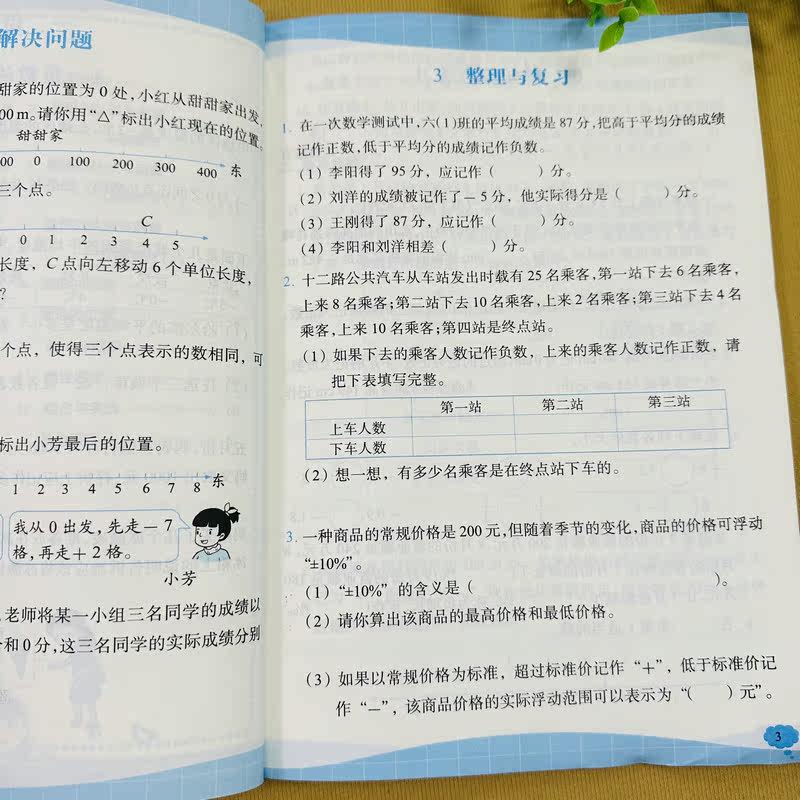 解决问题
甜家的位置为 0 处,小红从甜甜家出发,
00 m。请你用“△”标出小红现在的位置。
甜甜家
00 0 100 200 300 400 东
三个点。
C
0 1 2 3 4 5
长度，C 点向左移动 6 个单位长度，
？
个点，使得三个点表示的数相同，可
标出小芳最后的位置。
1 2 3 4 5 6 7 8 东
我从 0 出发，先走－7
格，再走＋2 格。
小芳
老师将某一小组三名同学的成绩以
和 0 分,这三名同学的实际成绩分别
3 整理与复习
1. 在一次数学测试中,六(1)班的平均成绩是 87 分,把高于平均分的成绩
记作正数,低于平均分的成绩记作负数。
(1) 李阳得了 95 分，应记作（ ）分。
(2) 刘洋的成绩被记作了－5 分，他实际得分是（ ）分。
(3) 王刚得了 87 分，应记作（ ）分。
(4) 李阳和刘洋相差（ ）分。
2. 十二路公共汽车从车站发出时载有 25 名乘客,第一站下去 6 名乘客,
上来 8 名乘客;第二站下去 10 名乘客,上来 2 名乘客;第三站下去 4 名
乘客,上来 10 名乘客;第四站是终点站。
(1) 如果下去的乘客人数记作负数，上来的乘客人数记作正数，请
把下表填写完整。
第一站 第二站 第三站
上车人数
下车人数
(2) 想一想，有多少名乘客是在终点站下车的。
3. 一种商品的常规价格是 200 元,但随着季节的变化,商品的价格可浮动
“±10%”。
(1) “±10%” 的含义是（ ）。
(2) 请你算出该商品的最高价格和最低价格。
(3) 如果以常规价格为标准，超过标准价记作“＋”，低于标准价记
作“－”，该商品价格的实际浮动范围可以表示为“（ ）元”。
3